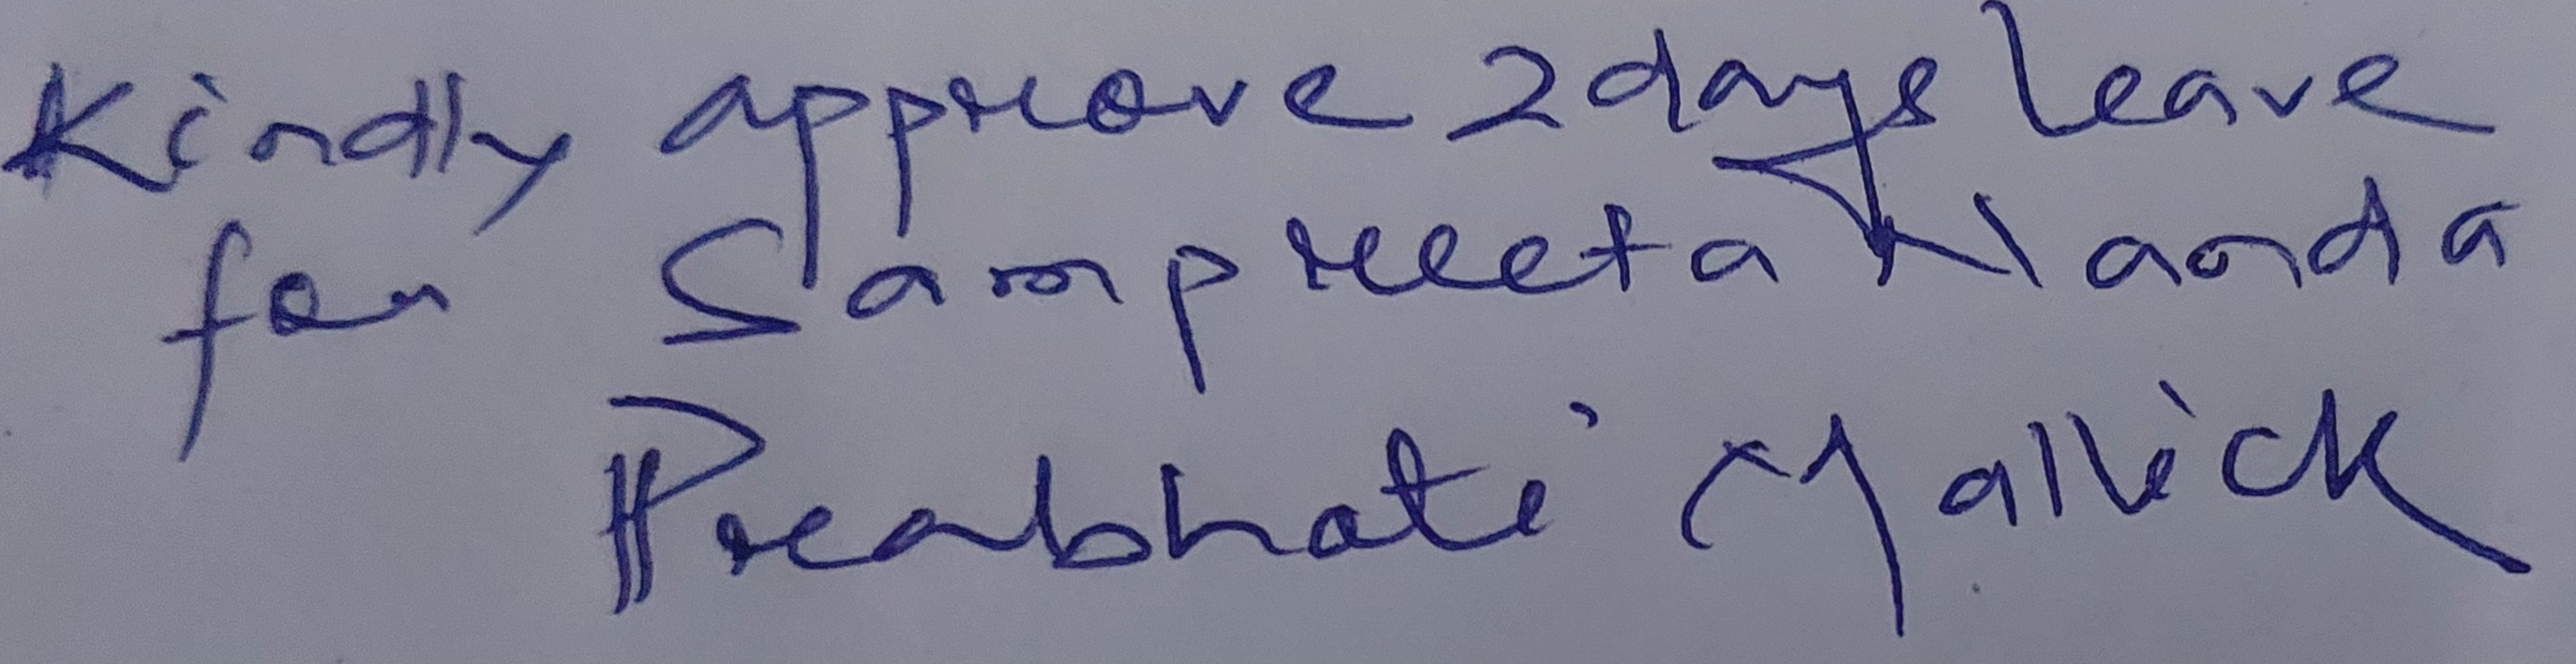 Kindly approve 2 days leave
for Sampreeta Nanda
Prabhati Mallick